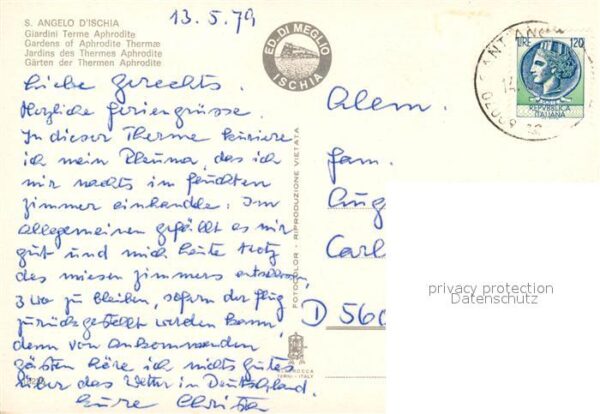 13.5.79
S. ANGELO D'ISCHIA
Giardini Terme Aphrodite
Gardens of Aphrodite Thermæ
Jardins des Thermes Aphrodite
Gärten der Thermen Aphrodite
ED. DI MEGLIO
ISCHIA
LIRE 120
REPVBBLICA
ITALIANA
Liebe Gerechts.
Herzliche Feriengrüsse.
In dieser Therme kuriere
ich mein Rheuma, das ich
mir nachts im feuchten
Zimmer einhandle. Im
allgemeinen gefällt es mir
gut und mich heute trotz
des miesen Zimmers entschlossen,
3 Wo zu bleiben, sofern der Flug
zurückgestellt werden kann,
denn von ankommenden
Gästen höre ich nichts gutes
über das Wetter in Deutschland.
Eure
FOTOCOLOR - RIPRODUZIONE VIETATA
TERNI - ITALY
Alem.
Fam.
Aug
Carl
D 560
privacy protection
Datenschutz